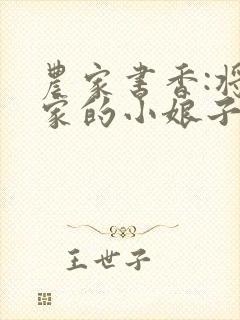 農家書香:將
家的小娘子
王世子